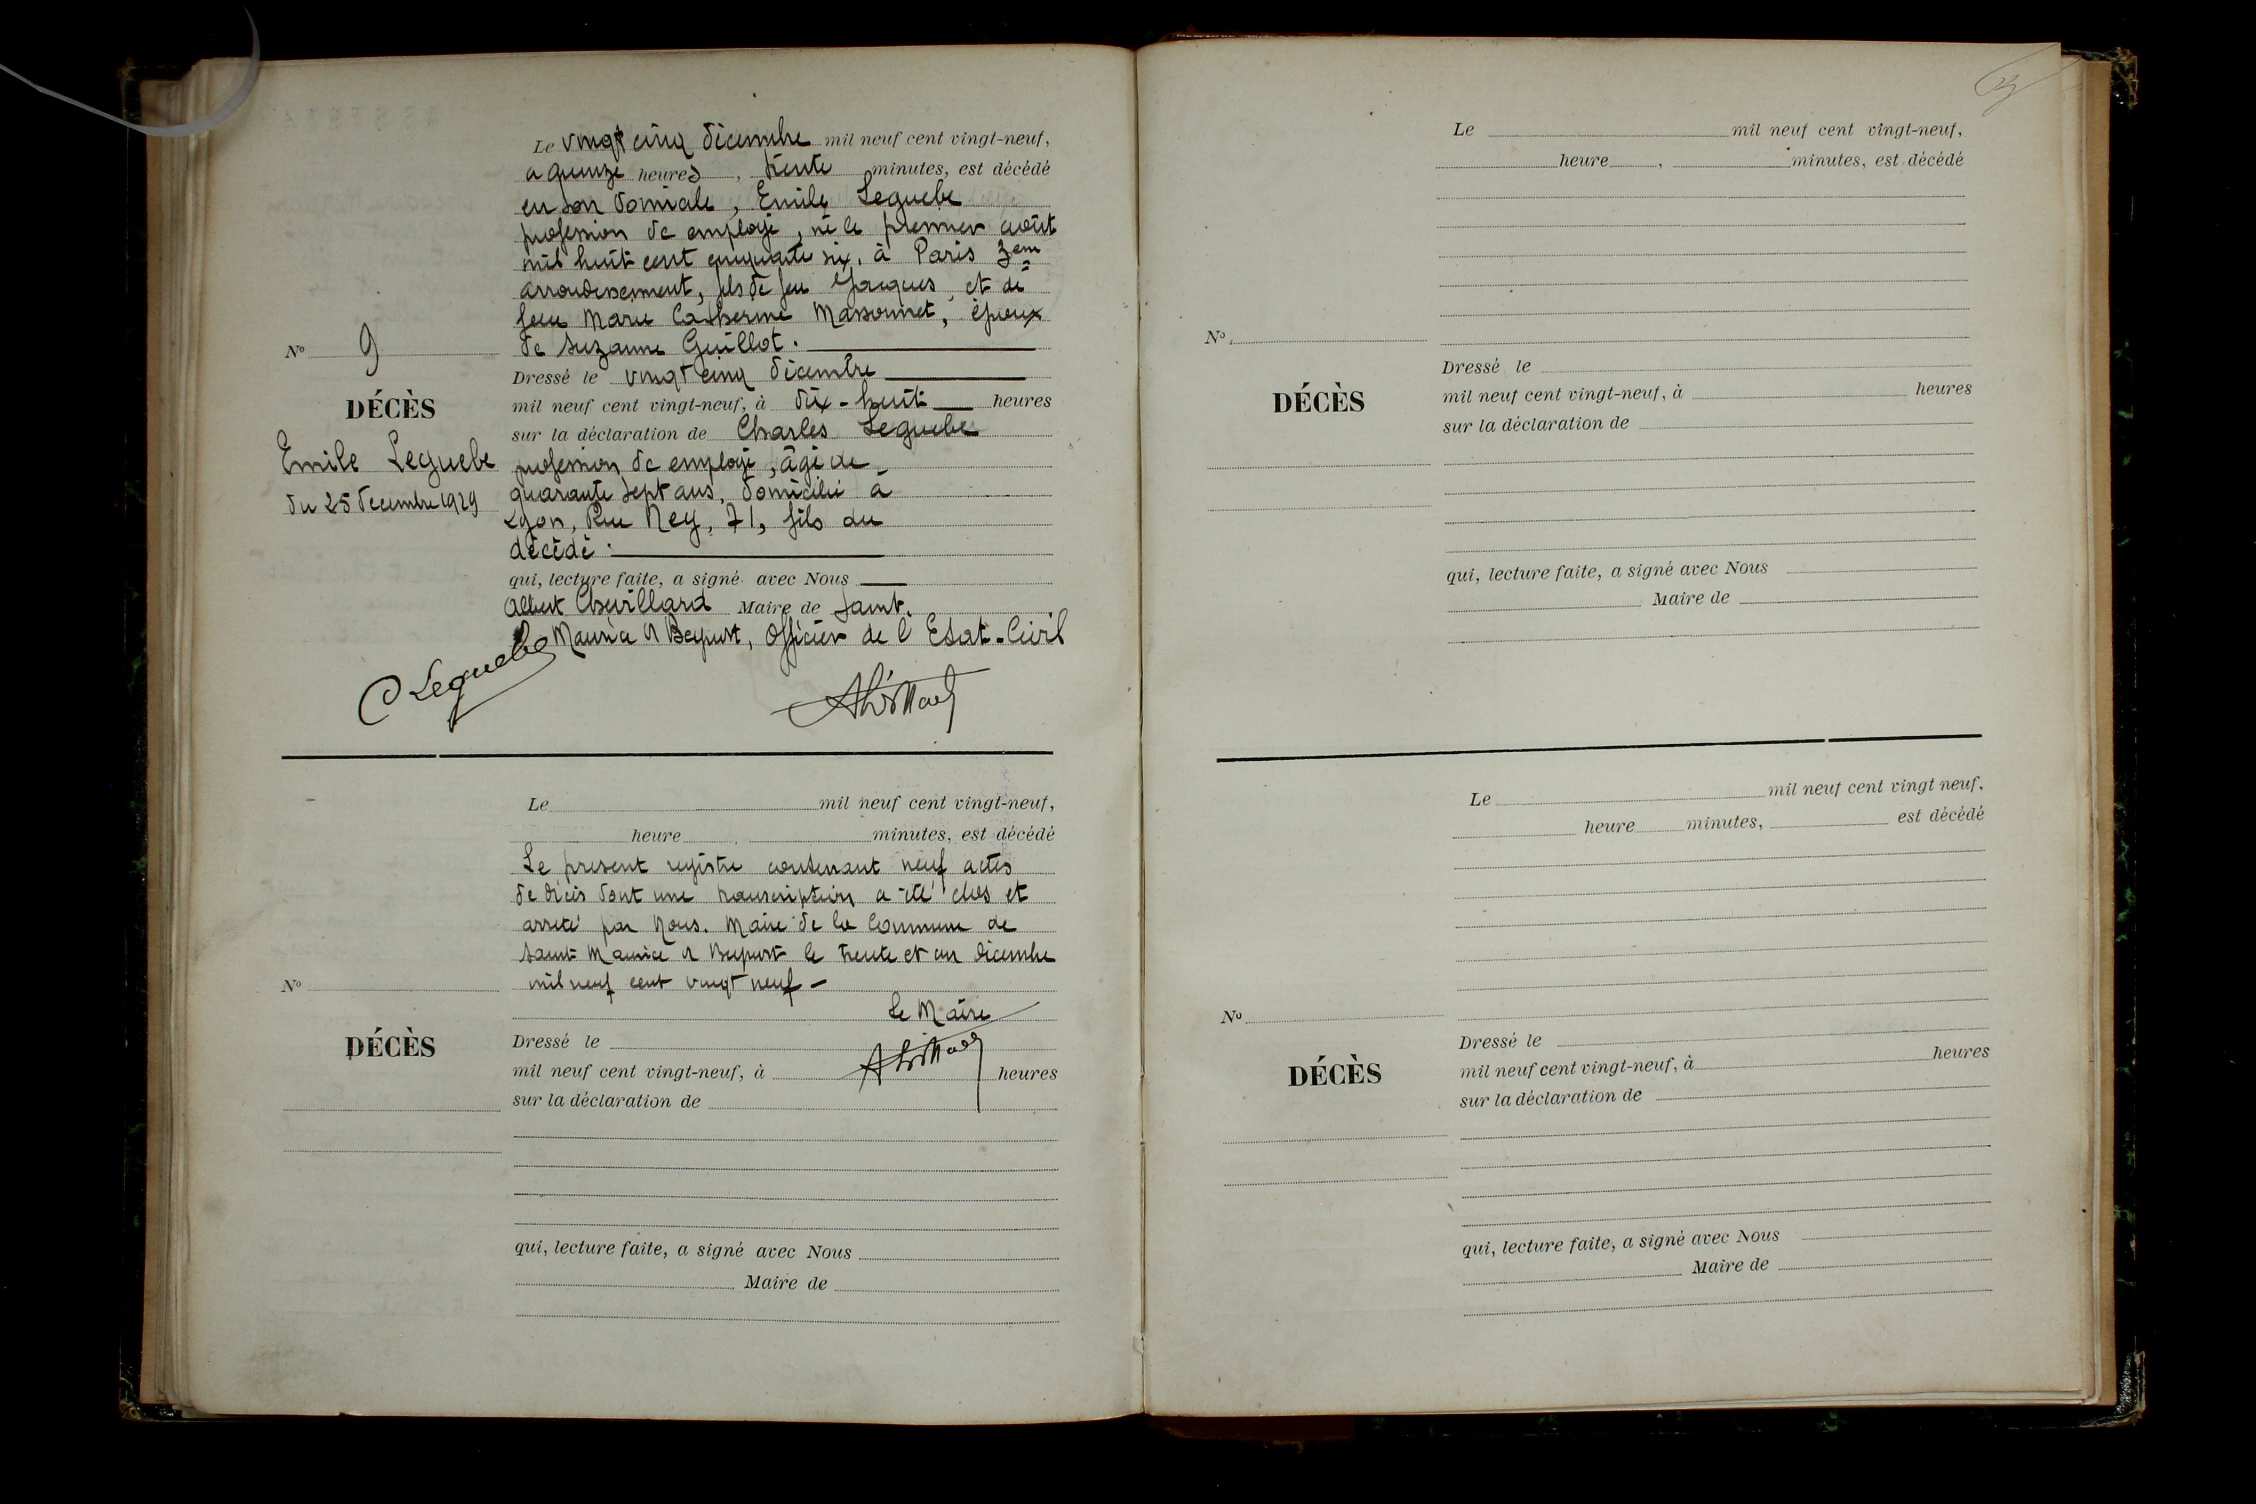 Le vingt cinq décembre mil neuf cent vingt-neuf,
a quinze heures, trente minutes, est décédé
en son domicile, Emile Leguebe
profession de employé, né le premier août
mil huit cent cinquante six, à Paris 3eme
arrondissement, fils de feu Jacques, et de
feue Marie Catherine Massonnet, époux
de Suzanne Guillot.
Nº 9
DÉCÈS
Emile Leguebe
du 25 décembre 1929
Dressé le vingt cinq décembre
mil neuf cent vingt-neuf, à dix-huit heures
sur la déclaration de Charles Leguebe
profession de employé, âgé de
quarante sept ans, domicilié à
Lyon, Rue Ney, 71, fils du
décédé.
qui, lecture faite, a signé avec Nous
Albert Chevillard Maire de Saint.
Maurice d Beynost, Officier de l'Etat-Civil
C Leguebe
Le mil neuf cent vingt-neuf,
heure, minutes, est décédé
Le présent registre contenant neuf actes
de décès dont une transcription a été clos et
arrêté par Nous. Maire de la Commune de
Saint Maurice d Beynost le trente et un décembre
mil neuf cent vingt neuf -
Le Maire
Nº
DÉCÈS
Dressé le
mil neuf cent vingt-neuf, à heures
sur la déclaration de
qui, lecture faite, a signé avec Nous
Maire de
Le mil neuf cent vingt-neuf,
heure, minutes, est décédé
Nº
DÉCÈS
Dressé le
mil neuf cent vingt-neuf, à heures
sur la déclaration de
qui, lecture faite, a signé avec Nous
Maire de
Le mil neuf cent vingt neuf,
heure minutes, est décédé
Nº
DÉCÈS
Dressé le
mil neuf cent vingt-neuf, à heures
sur la déclaration de
qui, lecture faite, a signé avec Nous
Maire de